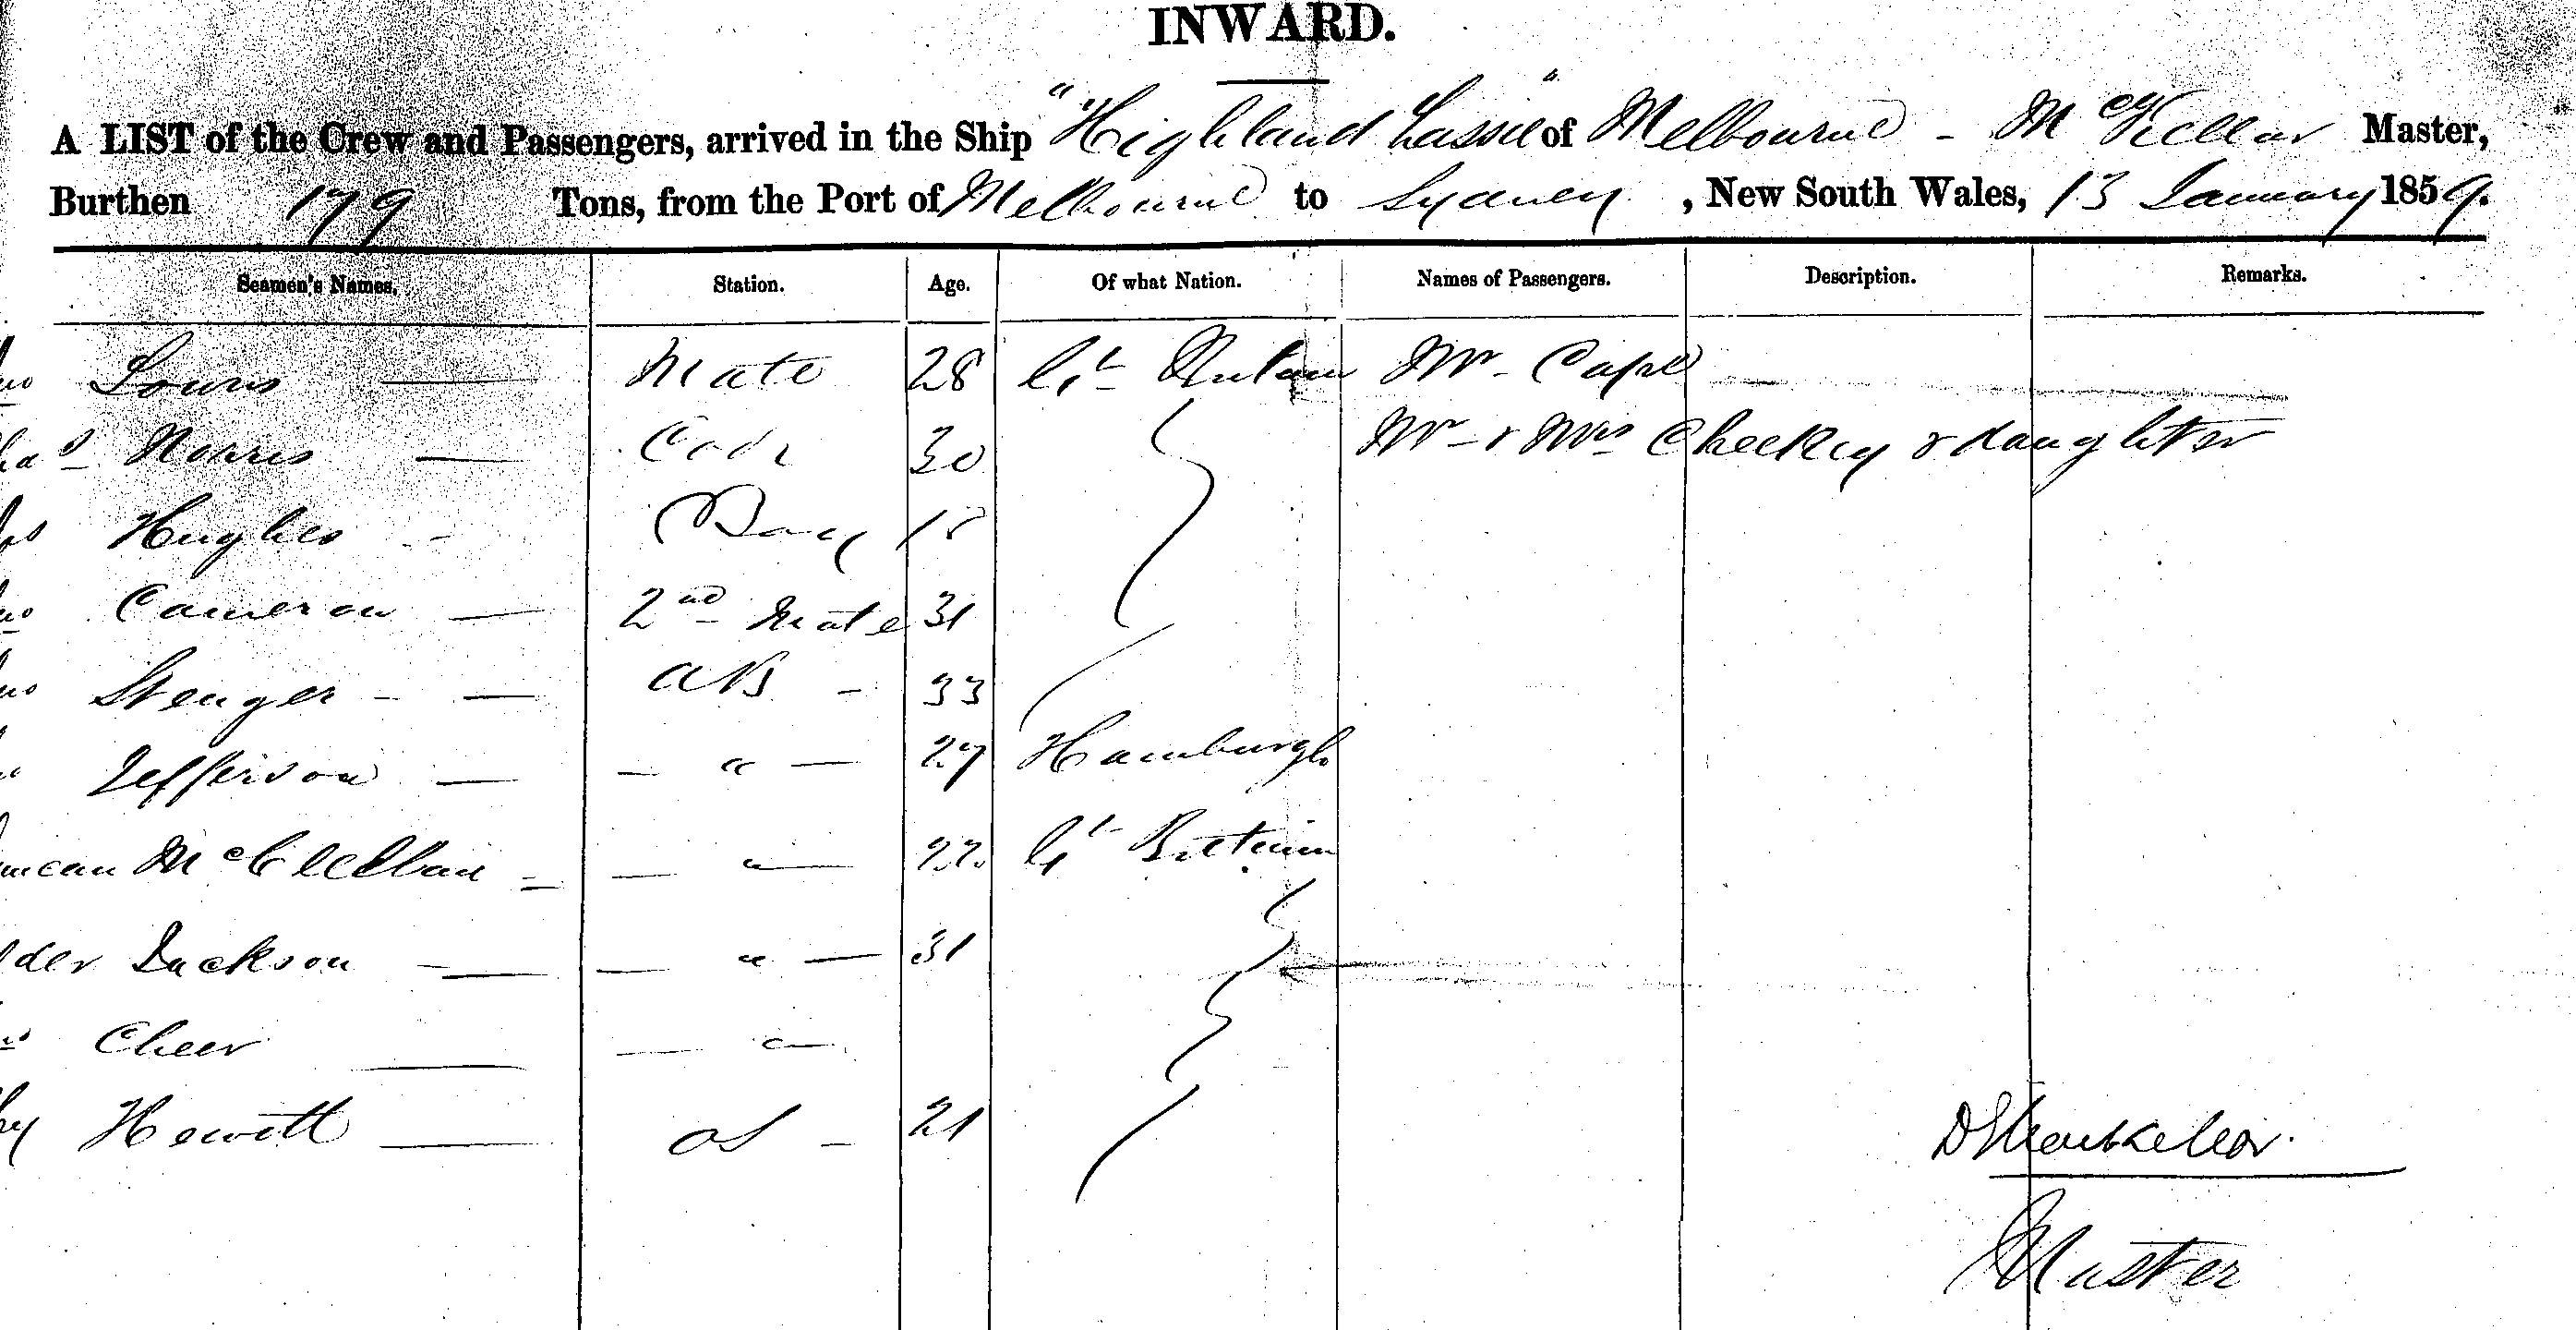 INWARD.
A LIST of the Crew and Passengers, arrived in the Ship "Highland Lassie" of Melbourne - McKellar Master,
Burthen 179 Tons, from the Port of Melbourne to Sydney, New South Wales, 13 January 1859.
Seamen's Names. Station. Age. Of what Nation. Names of Passengers. Description. Remarks.
Mate 28 Gt Britain Mr Cape
Norris Cook 30 Mr & Mrs Checkley & daughter
Hughes Boy 18
Cameron 2nd Mate 31
Stenger AB 33
Jefferson " 27 Hamburgh
McClellan " 22 Gt Britain
Jackson " 31
Cheer "
Hewitt OS 21
Master